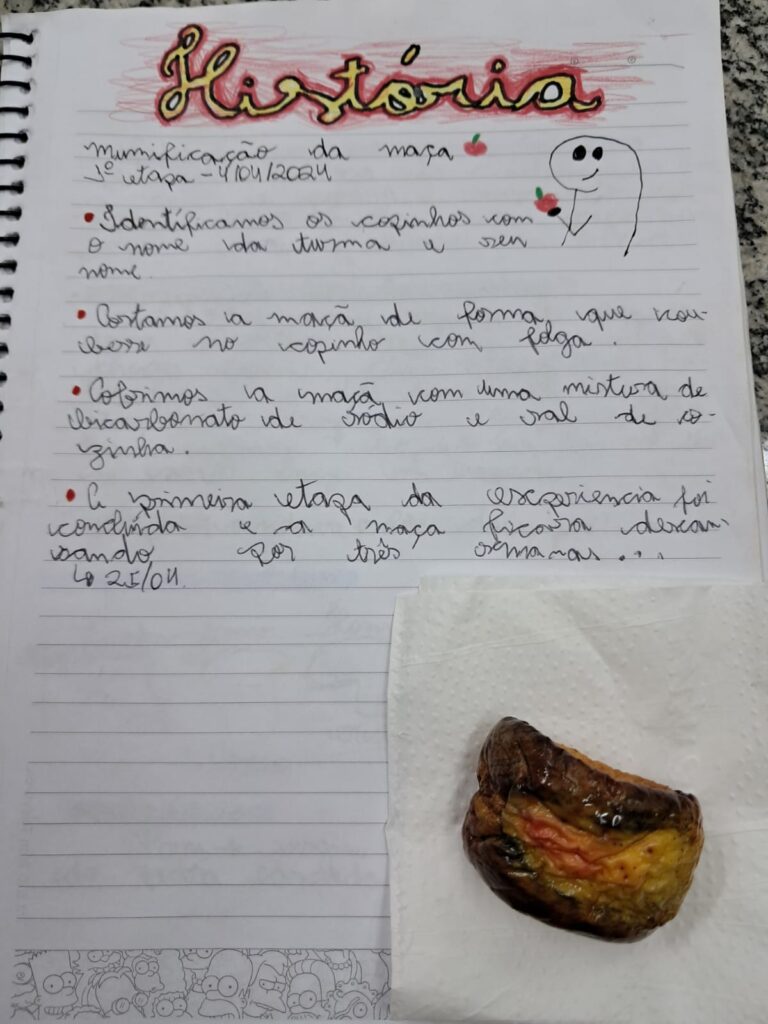 História
Mumificação da maça
1º etapa - 4/04/2024
• Identificamos os copinhos com
o nome da turma e seu
nome.
• Cortamos a maçã de forma que cou-
besse no copinho com folga.
• Cobrimos a maçã com uma mistura de
bicarbonato de sódio e sal de co-
zinha.
• A primeira etapa da experiencia foi
concluída e a maça ficara descan-
sando por três semanas...
↳ 25/04.